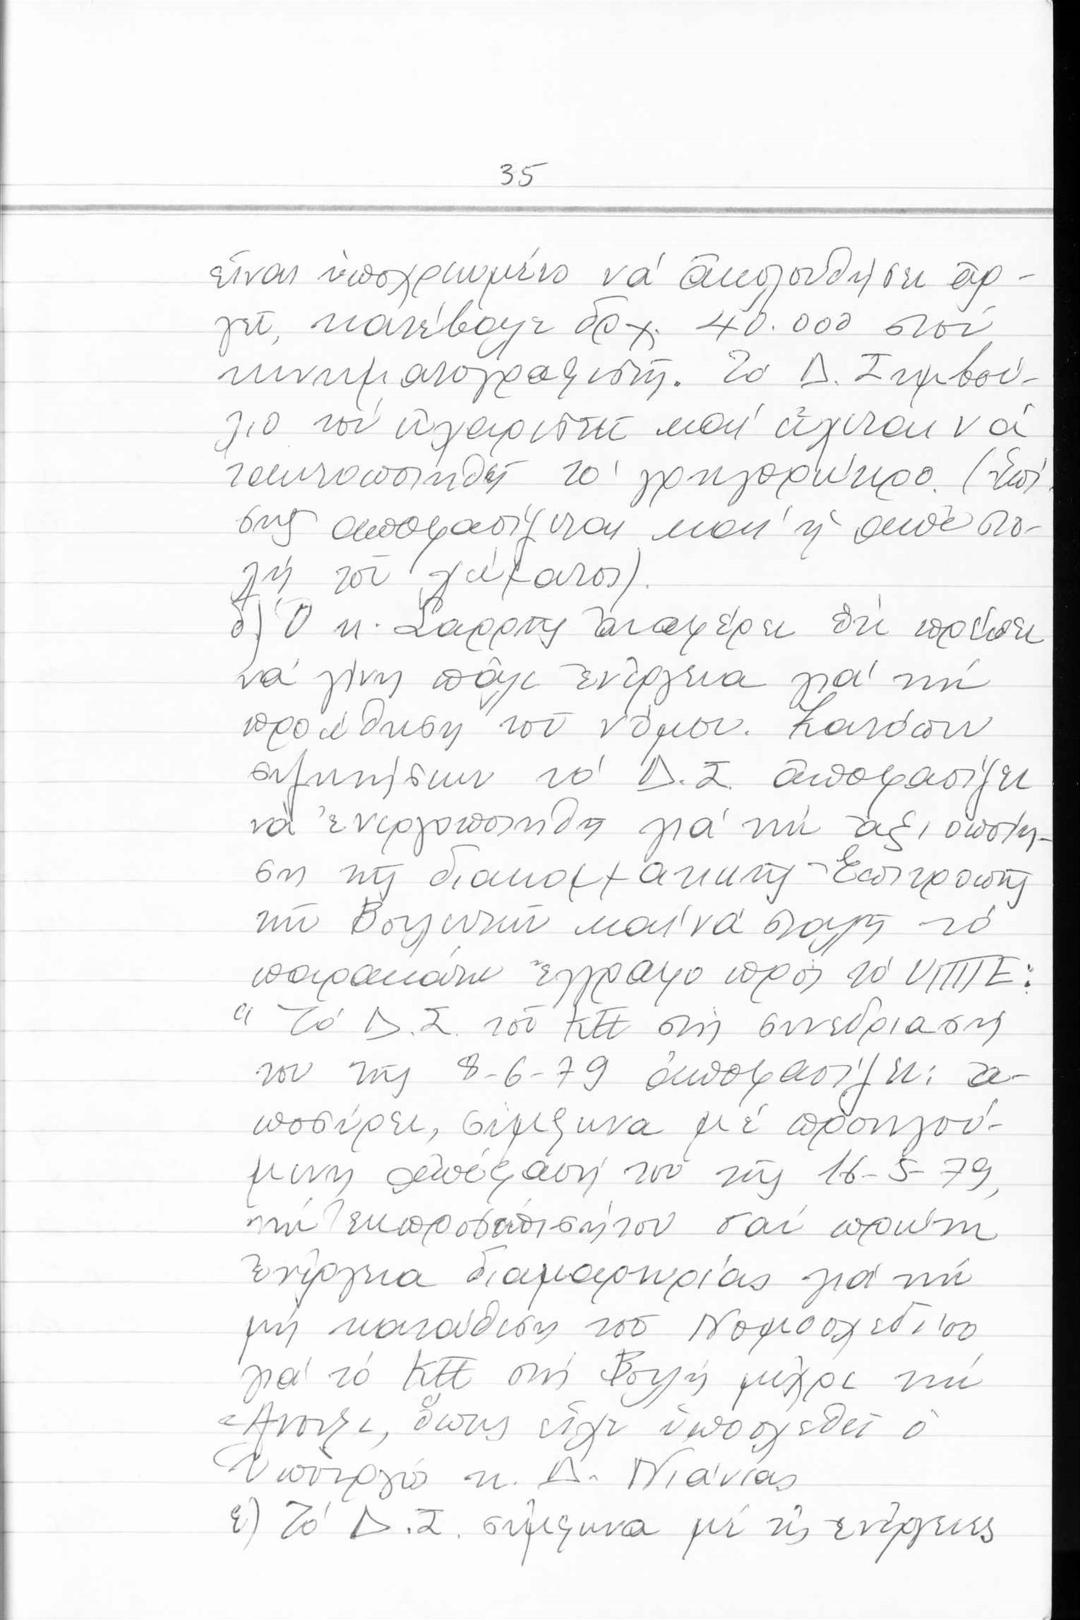 35
εἶναι ὑποχρεωμένο νά ἀκολουθήσει ἀρ-
γεῖ, κατέβαλε δρχ. 40.000 στόν
κινηματογραφιστή. Τό Δ. Συμβού-
λιο τόν εὐχαριστεῖ καί εὔχεται νά
τακτοποιηθεῖ τό γρηγορώτερο. (Ἐπί
σης ἀποφασίζεται καί ἡ ἀποστο-
λή τοῦ γράμματος).
δ) Ὁ κ. Σαρρής ἀναφέρει ὅτι πρέπει
νά γίνη πάλι ἐνέργεια γιά τήν
προώθηση τοῦ νόμου. Κατόπιν
συζητήσεων τό Δ.Σ ἀποφασίζει
νά ἐνεργοποιηθῆ γιά τήν ἀξιοποίη-
ση τῆς διακομματικῆς Ἐπιτροπῆς
τῶν Βουλευτῶν καί νά σταλῆ τό
παρακάτω ἔγγραφο πρός τό ΥΠΠΕ:
" Τό Δ.Σ. τοῦ ΚΠΕ στή συνεδρίαση
του τῆς 8-6-79 ἀποφασίζει: ἀ-
ποσύρει, σύμφωνα μέ προηγού-
μενη ἀπόφασή του τῆς 16-5-79,
τήν ἐκπροσώπισή του σάν πρώτη
ἐνέργεια διαμαρτυρίας γιά τήν
μή κατάθεση τοῦ Νομοσχεδίου
γιά τό ΚΠΕ στή Βουλή μέχρι τήν
Ἄνοιξι, ὅπως εἶχε ὑποσχεθεῖ ὁ
Ὑπουργός κ. Δ. Νιάνιας
ε) Τό Δ.Σ. σύμφωνα μέ τίς ἐνέργειες